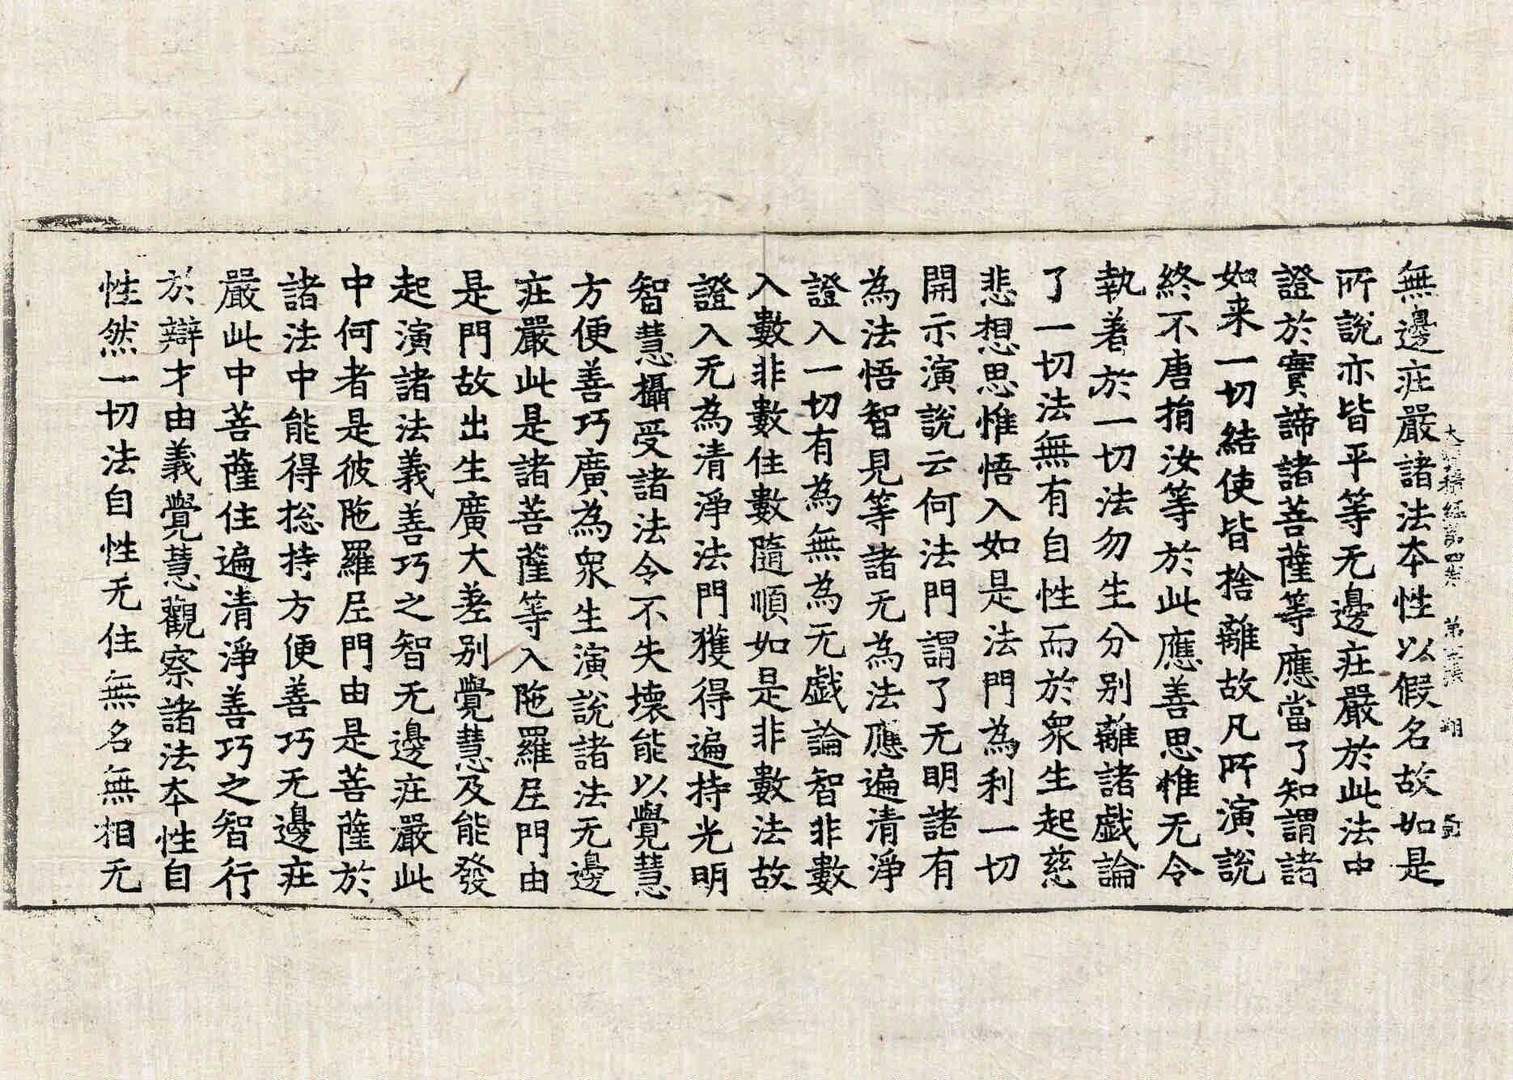 無邊疘嚴諸法本性以假名故如是
所說亦皆平等无邊疘嚴於此法中
證於實諦諸菩薩等應當了知謂諸
如来一切結使皆捨離故凡所演說
終不唐捐汝等於此應善思惟无令
執着於一切法勿生分別離諸戱論
了一切法無有自性而於衆生起慈
悲想思惟悟入如是法門為利一切
開示演說云何法門謂了无明諸有
為法悟智見等諸无為法應遍清淨
證入一切有為無為无戱論智非數
入數非數住數隨順如是非數法故
證入无為清淨法門獲得遍持光明
智慧攝受諸法令不失壞能以覺慧
方便善巧廣為衆生演說諸法无邊
疘嚴此是諸菩薩等入陁羅尼門由
是門故出生廣大差别覺慧及能發
起演諸法義善巧之智无邊疘嚴此
中何者是彼陁羅尼門由是菩薩於
諸法中能得揔持方便善巧无邊疘
嚴此中菩薩住遍清淨善巧之智行
於辯才由義覺慧觀察諸法本性自
性然一切法自性无住無名無相无
大積經第四卷 第張 翔